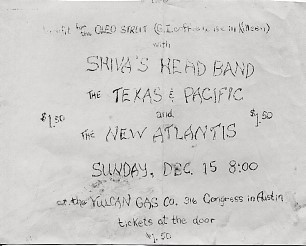 for the OLEO STRUT (G.I.
with
SHIVA'S HEAD BAND
THE TEXAS & PACIFIC
$1.50 and $1.50
THE NEW ATLANTIS
SUNDAY, DEC. 15 8:00
at the VULCAN GAS CO. 316 Congress in Austin
tickets at the door
$1.50